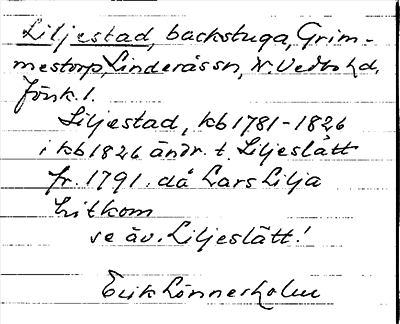 Liljestad, backstuga, Grim-
mestorp, Linderås sn, N. Vedbo hd,
Jönk. l.
Liljestad, kb 1781-1826
i kb 1826 ändr. t. Liljeslätt
fr. 1791. då Lars Lilja
hitkom
se äv. Liljeslätt!
Erik Lönnerholm